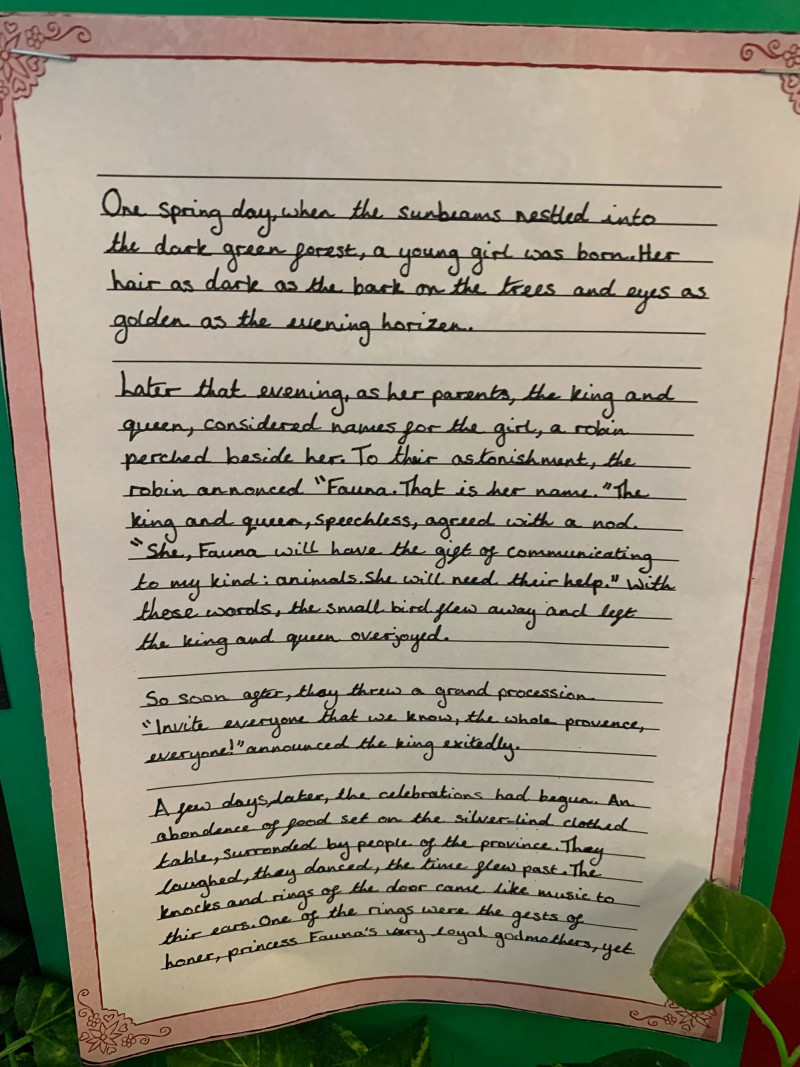 One spring day, when the sunbeams nestled into
the dark green forest, a young girl was born. Her
hair as dark as the bark on the trees and eyes as
golden as the evening horizen.
Later that evening, as her parents, the king and
queen, considered names for the girl, a robin
perched beside her. To their astonishment, the
robin annonced “Fauna. That is her name.” The
king and queen, speechless, agreed with a nod.
“She, Fauna will have the gift of communicating
to my kind: animals. She will need their help.” With
these words, the small bird flew away and left
the king and queen overjoyed.
So soon after, they threw a grand procession.
“Invite everyone that we know, the whole provence,
everyone!” announced the king exitedly.
A few days, later, the celebrations had begun. An
abondence of food set on the silver-lind clothed
table, surronded by people of the province. They
laughed, they danced, the time flew past. The
knocks and rings of the door came like music to
thir ears. One of the rings were the gests of
honer, princess Fauna's very loyal godmothers, yet